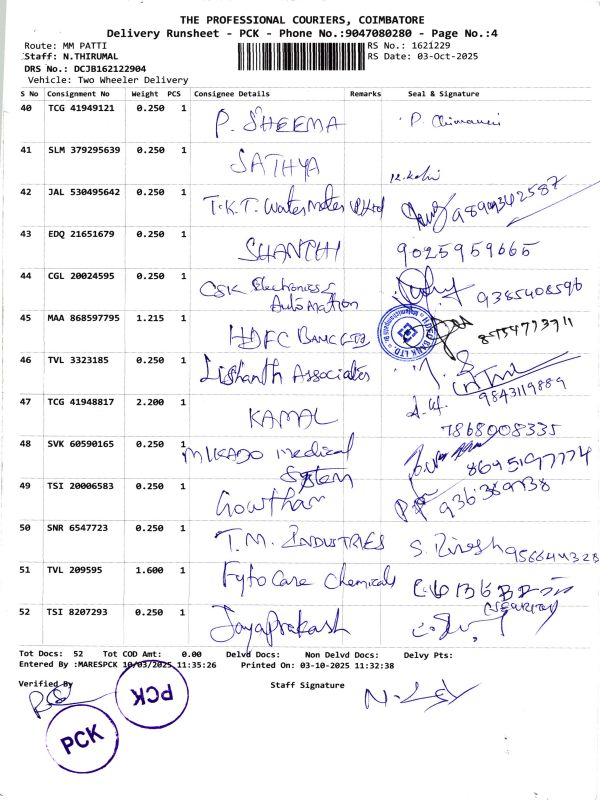 THE PROFESSIONAL COURIERS, COIMBATORE
Delivery Runsheet - PCK - Phone No.:9047080280 - Page No.:4
Route: MM PATTI RS No.: 1621229
Staff: N.THIRUMAL RS Date: 03-Oct-2025
DRS No.: DCJB162122904
Vehicle: Two Wheeler Delivery
S No Consignment No Weight PCS Consignee Details Remarks Seal & Signature
40 TCG 41949121 0.250 1 P. SHEEMA P.
41 SLM 379295639 0.250 1 SATHYA
42 JAL 530495642 0.250 1 T.K.T. Water Meter
43 EDQ 21651679 0.250 1 SHANTHI 9025959665
44 CGL 20024595 0.250 1 CSK Electronics &
Automation 9385408596
45 MAA 868597795 1.215 1 HDFC Bank LTD
HDFC BANK LTD
46 TVL 3323185 0.250 1 Lishanth Associates
9843119889
47 TCG 41948817 2.200 1 KAMAL
7868008335
48 SVK 60590165 0.250 1 MIKADO Medical
System
49 TSI 20006583 0.250 1 Gowtham
50 SNR 6547723 0.250 1 T.M. INDUSTRIES S. Dinesh
51 TVL 209595 1.600 1 Fyto Care Chemicals
52 TSI 8207293 0.250 1 Jayaprakash
Tot Docs: 52 Tot COD Amt: 0.00 Delvd Docs: Non Delvd Docs: Delvy Pts:
Entered By :MARESPCK 10/03/2025 11:35:26 Printed On: 03-10-2025 11:32:38
Verified By Staff Signature
PCK
PCK